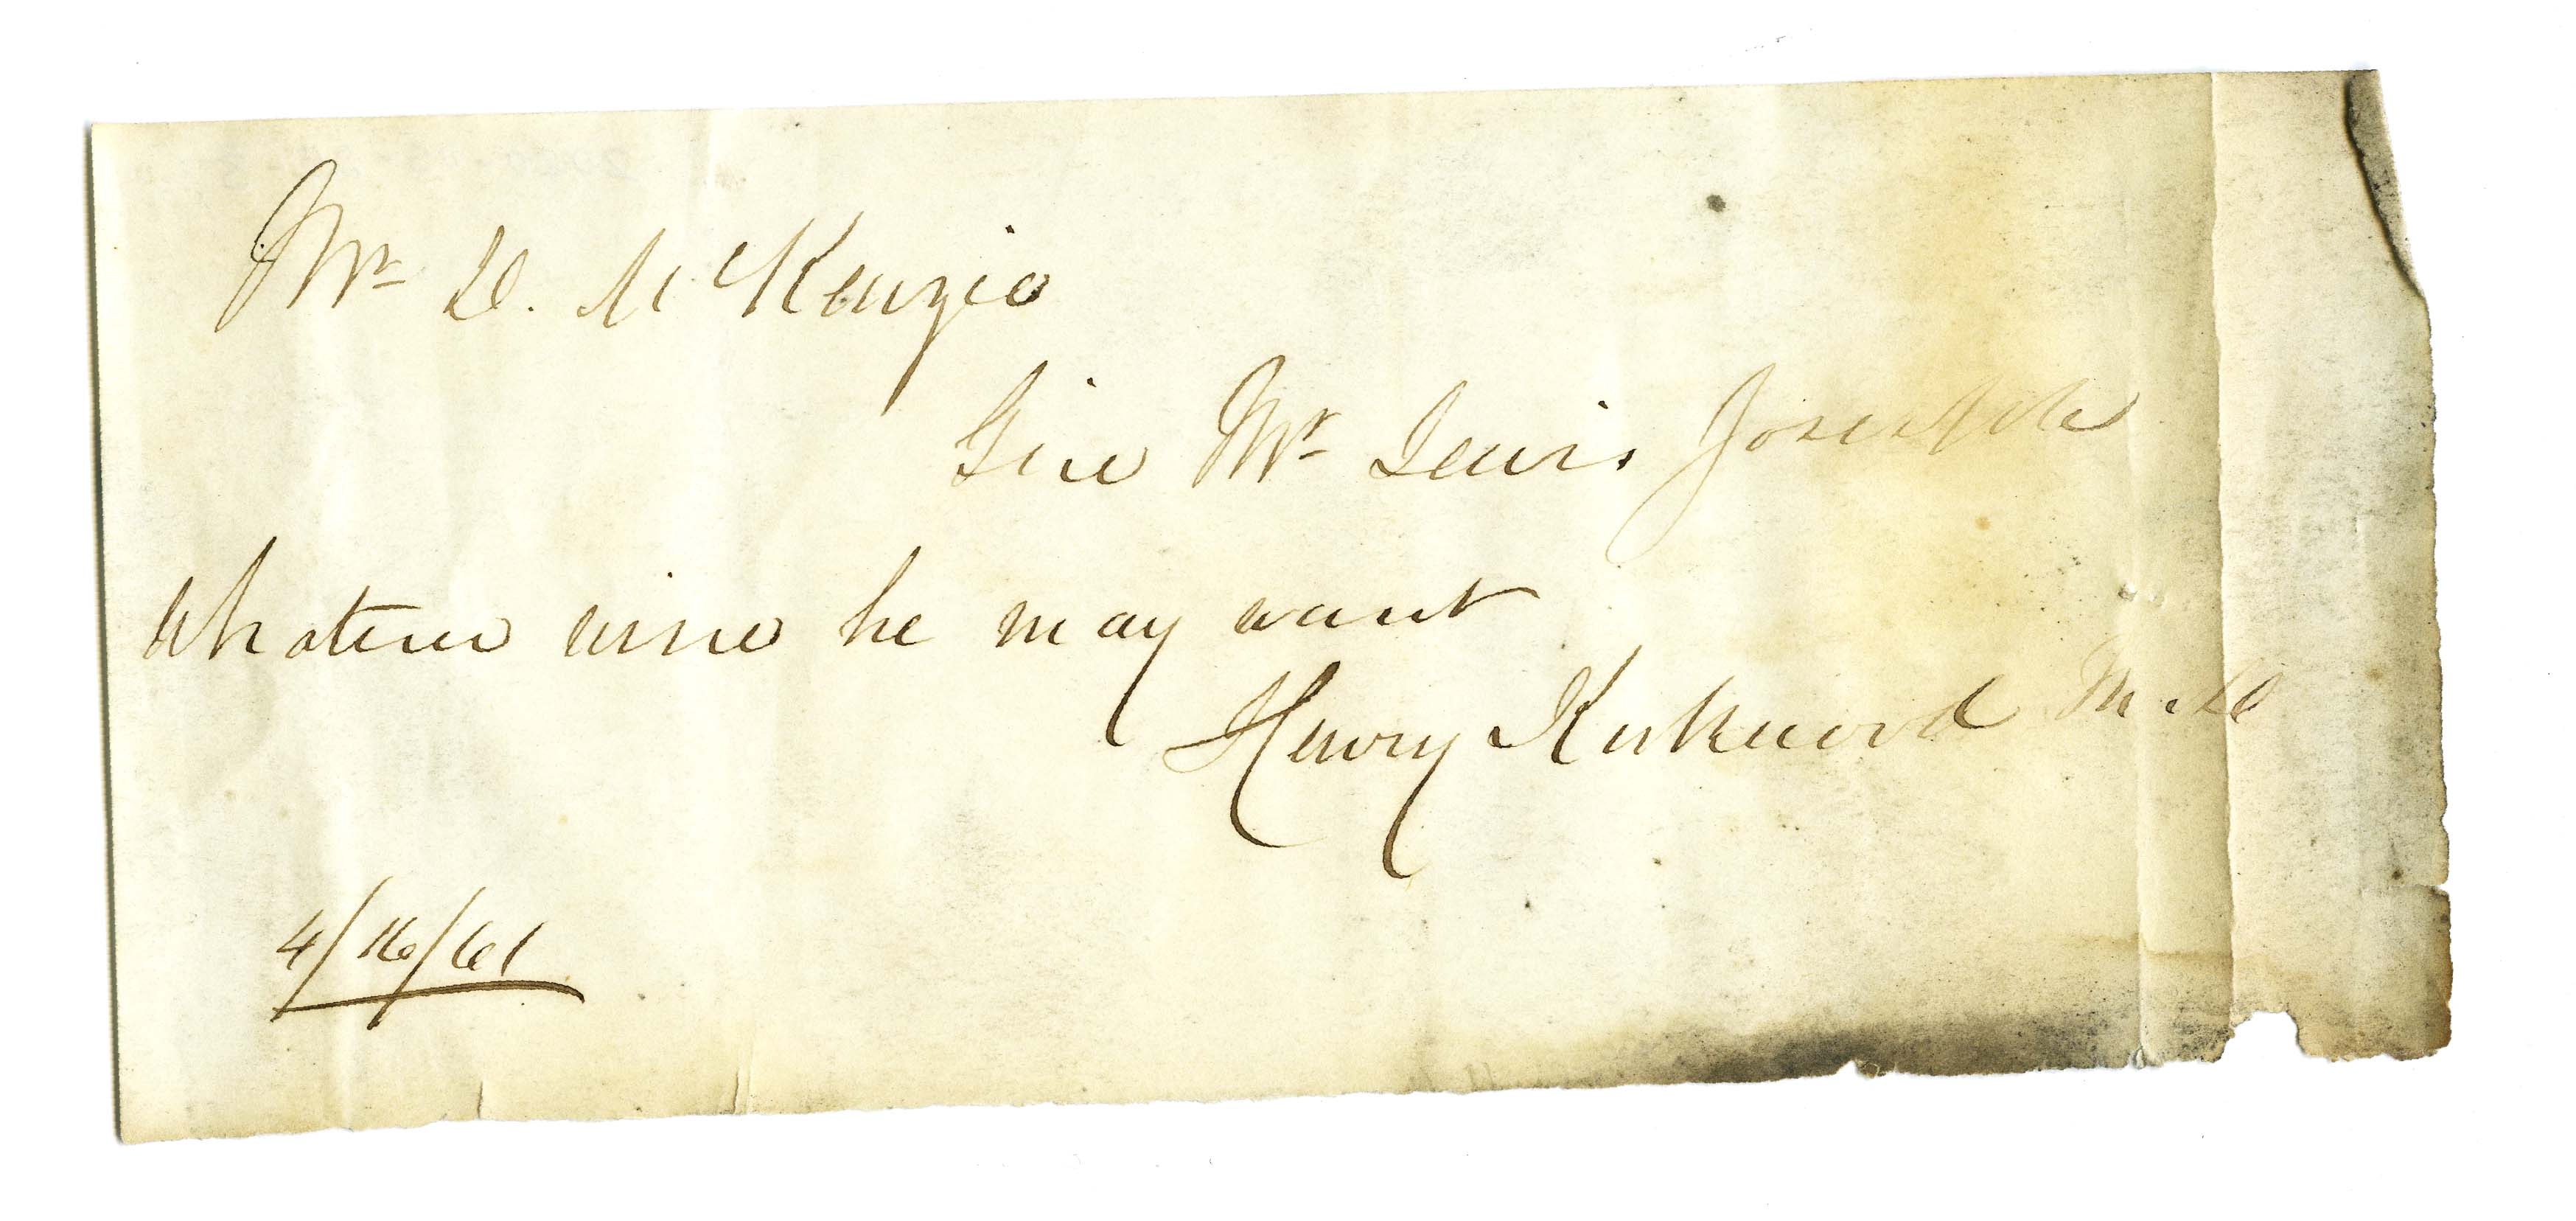 Mr D. McKenzie
Give Mr Lewis Joseph
Whatever wine he may want
Henry Kirkwood M.D
4/16/61